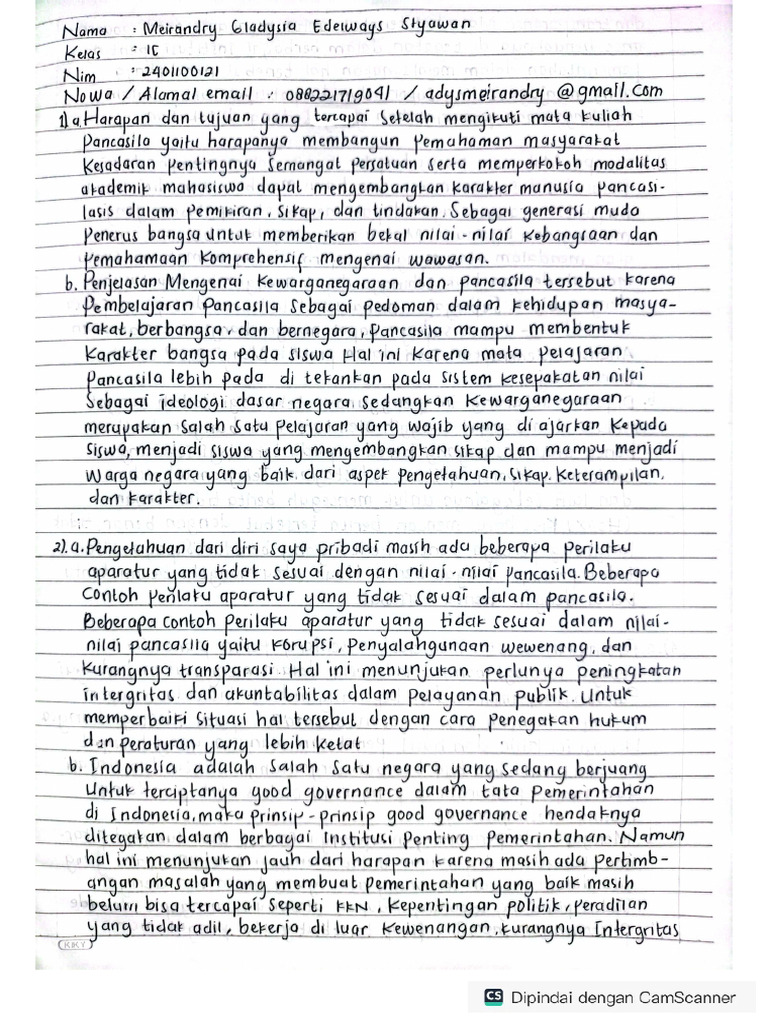 Nama : Meirandry Gladysia Edelways Styawan
Kelas : 1C
Nim : 2401100121
No wa / Alamal email : 088221719041 / adysmeirandry @gmail.com
1) a. Harapan dan tujuan yang tercapai setelah mengikuti mata kuliah
Pancasila yaitu harapanya membangun pemahaman masyarakat
kesadaran pentingnya semangat persatuan serta memperkokoh modalitas
akademik mahasiswa dapat mengembangkan karakter manusia pancasi-
lasis dalam pemikiran, sikap, dan tindakan. Sebagai generasi muda
penerus bangsa untuk memberikan bekal nilai-nilai kebangsaan dan
pemahamaan komprehensif mengenai wawasan.
b. Penjelasan Mengenai kewarganegaraan dan pancasila tersebut karena
pembelajaran pancasila sebagai pedoman dalam kehidupan masya-
rakat, berbangsa, dan bernegara, pancasila mampu membentuk
karakter bangsa pada siswa Hal ini karena mata pelajaran
pancasila lebih pada di tekankan pada sistem kesepakatan nilai
sebagai ideologi dasar negara sedangkan kewarganegaraan
merupakan salah satu pelajaran yang wajib yang di ajarkan kepada
siswa, menjadi siswa yang mengembangkan sikap dan mampu menjadi
warga negara yang baik dari aspek pengetahuan, sikap, keterampilan,
dan karakter.
2). a. Pengetahuan dari diri saya pribadi masih ada beberapa perilaku
aparatur yang tidak sesuai dengan nilai-nilai pancasila. Beberapa
contoh perilaku aparatur yang tidak sesuai dalam pancasila.
Beberapa contoh perilaku aparatur yang tidak sesuai dalam nilai-
nilai pancasila yaitu korupsi, penyalahgunaan wewenang, dan
kurangnya transparasi. Hal ini menunjukan perlunya peningkatan
intergritas dan akuntabilitas dalam pelayanan publik. Untuk
memperbaiki situasi hal tersebut dengan cara penegakan hukum
dan peraturan yang lebih ketat
b. Indonesia adalah salah satu negara yang sedang berjuang
untuk terciptanya good governance dalam tata pemerintahan
di Indonesia, maka prinsip-prinsip good governance hendaknya
ditegakan dalam berbagai institusi penting pemerintahan. Namun
hal ini menunjukan jauh dari harapan karena masih ada pertimb-
angan masalah yang membuat pemerintahan yang baik masih
belum bisa tercapai seperti KKN, kepentingan politik, peradilan
yang tidak adil, bekerja di luar kewenangan, kurangnya Intergritas
KKY
CS Dipindai dengan CamScanner